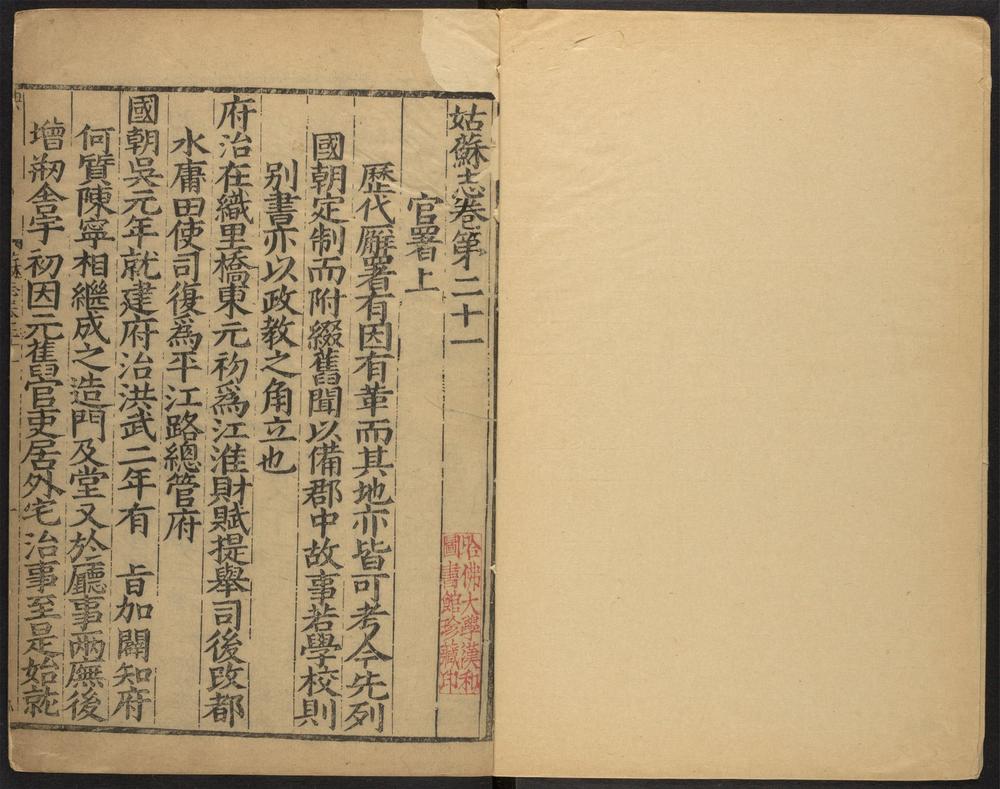 姑蘇志卷第二十一
官署上
歷代廨署有因有革而其地亦皆可考今先列
國朝定制而附綴舊聞以備郡中故事若學校則
别書亦以政教之角立也
府治在織里橋東元初爲江淮財賦提舉司後改都
水庸田使司復爲平江路總管府
國朝吳元年就建府治洪武二年有 旨加闢知府
何質陳寧相繼成之造門及堂又於廳事兩廡後
增剏舍宇初因元舊官吏居外宅治事至是始就
哈佛大學漢和
圖書館珍藏印